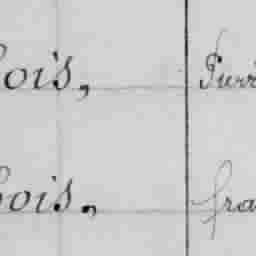 bois, Pierr
bois, fra